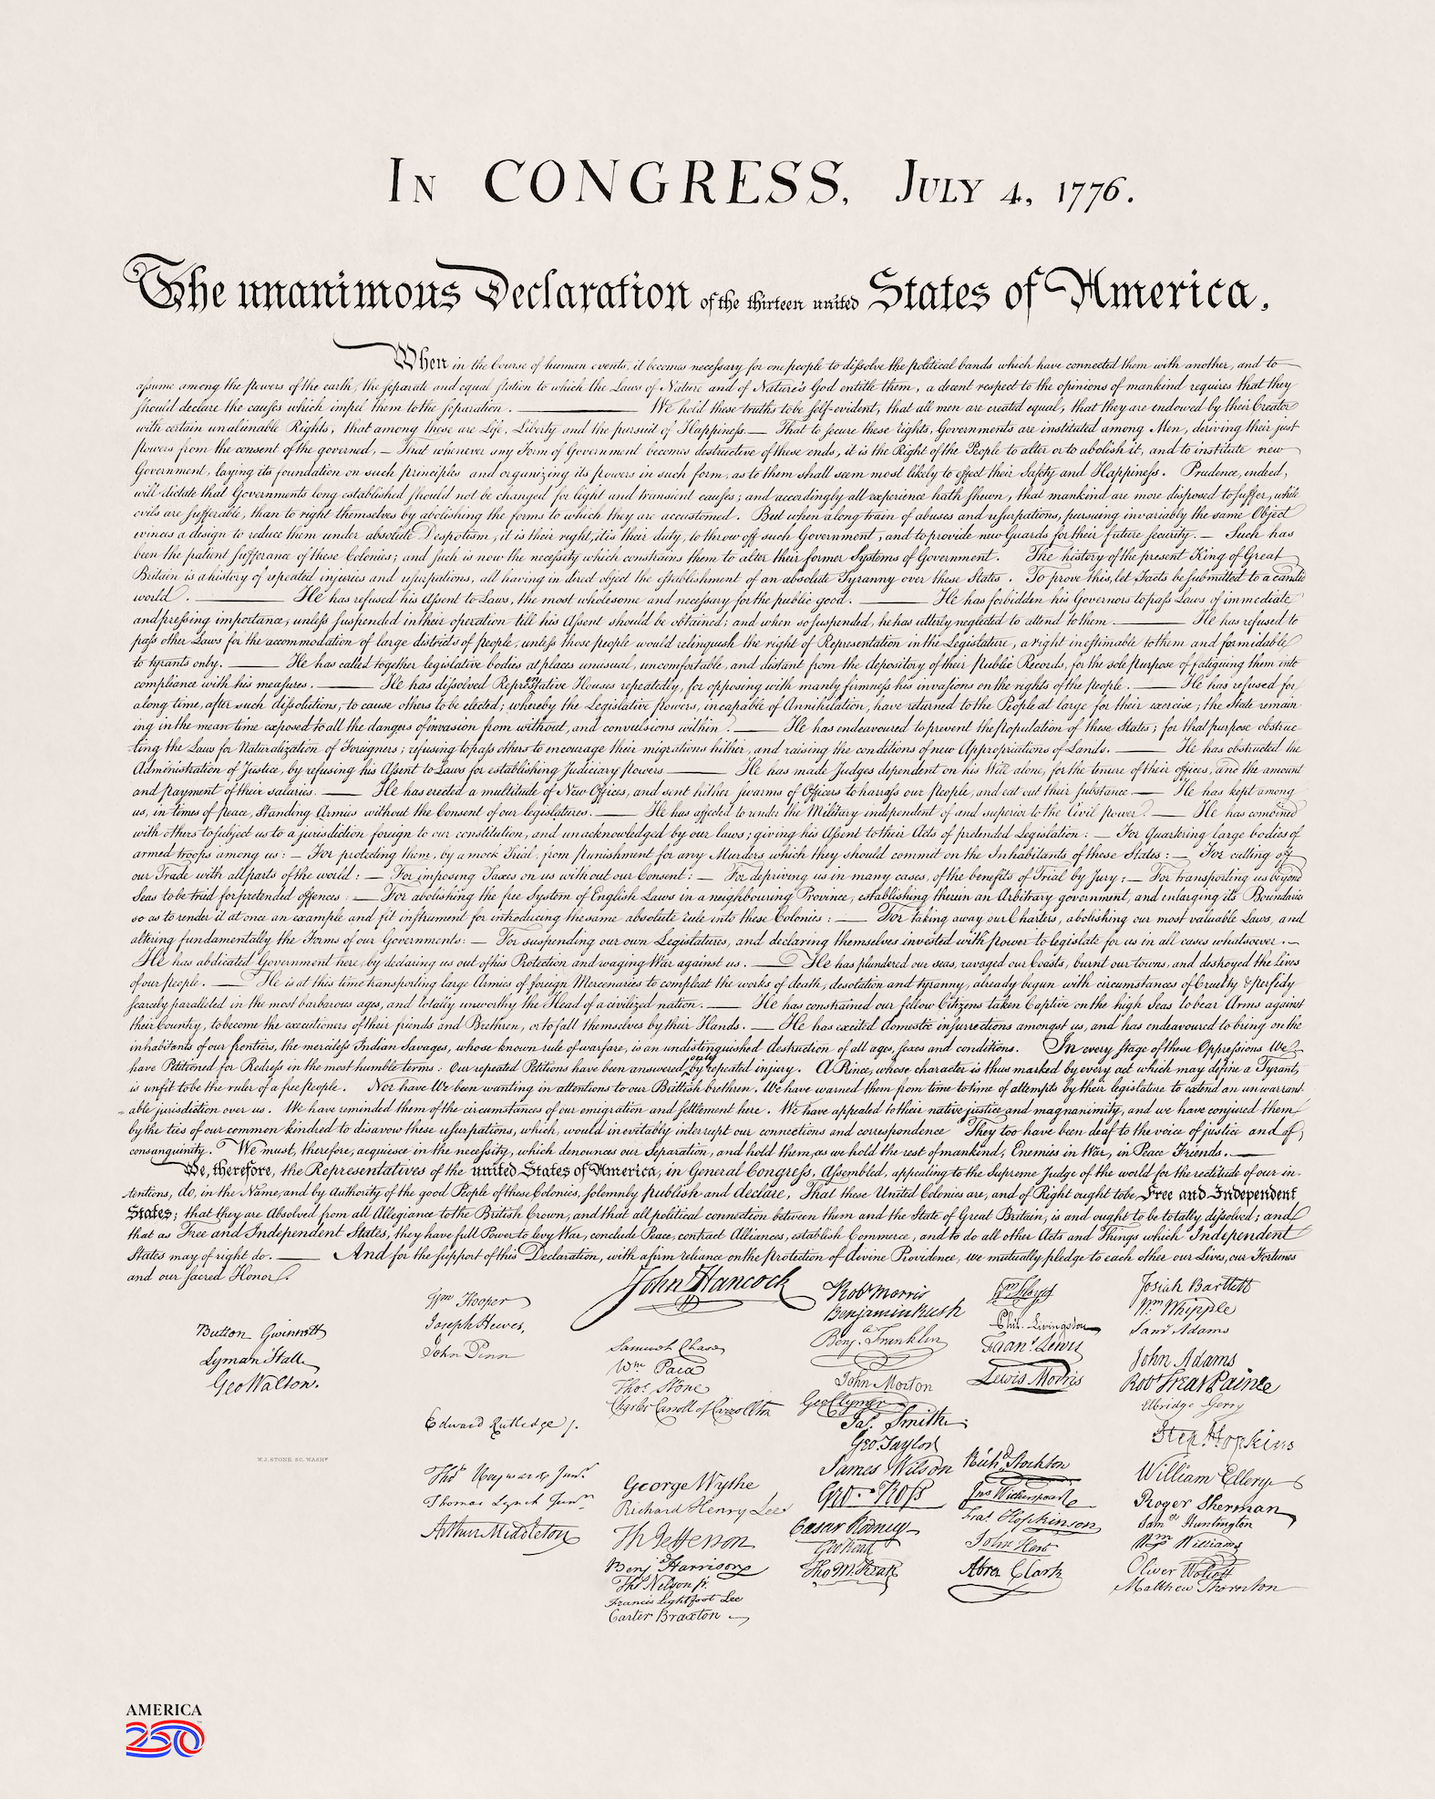 In CONGRESS, July 4, 1776.
The unanimous Declaration of the thirteen united States of America,
When in the Course of human events, it becomes necessary for one people to dissolve the political bands which have connected them with another, and to
assume among the powers of the earth, the separate and equal station to which the Laws of Nature and of Nature's God entitle them, a decent respect to the opinions of mankind requires that they
should declare the causes which impel them to the separation. ——— We hold these truths to be self-evident, that all men are created equal, that they are endowed by their Creator
with certain unalienable Rights, that among these are Life, Liberty and the pursuit of Happiness.— That to secure these rights, Governments are instituted among Men, deriving their just
powers from the consent of the governed, — That whenever any Form of Government becomes destructive of these ends, it is the Right of the People to alter or to abolish it, and to institute new
Government, laying its foundation on such principles and organizing its powers in such form, as to them shall seem most likely to effect their Safety and Happiness. Prudence, indeed,
will dictate that Governments long established should not be changed for light and transient causes; and accordingly all experience hath shewn, that mankind are more disposed to suffer, while
evils are sufferable, than to right themselves by abolishing the forms to which they are accustomed. But when a long train of abuses and usurpations, pursuing invariably the same Object
evinces a design to reduce them under absolute Despotism, it is their right, it is their duty, to throw off such Government, and to provide new Guards for their future security. — Such has
been the patient sufferance of these Colonies; and such is now the necessity which constrains them to alter their former Systems of Government. The history of the present King of Great
Britain is a history of repeated injuries and usurpations, all having in direct object the establishment of an absolute Tyranny over these States. To prove this, let Facts be submitted to a candid
world. ——— He has refused his Assent to Laws, the most wholesome and necessary for the public good. ——— He has forbidden his Governors to pass Laws of immediate
and pressing importance, unless suspended in their operation till his Assent should be obtained; and when so suspended, he has utterly neglected to attend to them. ——— He has refused to
pass other Laws for the accommodation of large districts of people, unless those people would relinquish the right of Representation in the Legislature, a right inestimable to them and formidable
to tyrants only. ——— He has called together legislative bodies at places unusual, uncomfortable, and distant from the depository of their public Records, for the sole purpose of fatiguing them into
compliance with his measures. ——— He has dissolved Representative Houses repeatedly, for opposing with manly firmness his invasions on the rights of the people. ——— He has refused for
a long time, after such dissolutions, to cause others to be elected; whereby the Legislative powers, incapable of Annihilation, have returned to the People at large for their exercise; the State remain-
ing in the mean time exposed to all the dangers of invasion from without, and convulsions within. ——— He has endeavoured to prevent the population of these States; for that purpose obstruc-
ting the Laws for Naturalization of Foreigners; refusing to pass others to encourage their migrations hither, and raising the conditions of new Appropriations of Lands. ——— He has obstructed the
Administration of Justice, by refusing his Assent to Laws for establishing Judiciary powers ——— He has made Judges dependent on his Will alone, for the tenure of their offices, and the amount
and payment of their salaries. ——— He has erected a multitude of New Offices, and sent hither swarms of Officers to harrass our people, and eat out their substance. — He has kept among
us, in times of peace, Standing Armies without the Consent of our legislatures. — He has affected to render the Military independent of and superior to the Civil power. — He has combined
with others to subject us to a jurisdiction foreign to our constitution, and unacknowledged by our laws; giving his Assent to their Acts of pretended Legislation: — For Quartering large bodies of
armed troops among us: — For protecting them, by a mock Trial, from punishment for any Murders which they should commit on the Inhabitants of these States: — For cutting off
our Trade with all parts of the world: — For imposing Taxes on us without our Consent: — For depriving us in many cases, of the benefits of Trial by Jury: — For transporting us beyond
Seas to be tried for pretended offences — For abolishing the free System of English Laws in a neighbouring Province, establishing therein an Arbitrary government, and enlarging its Boundaries
so as to render it at once an example and fit instrument for introducing the same absolute rule into these Colonies: — For taking away our Charters, abolishing our most valuable Laws, and
altering fundamentally the Forms of our Governments: — For suspending our own Legislatures, and declaring themselves invested with power to legislate for us in all cases whatsoever. —
He has abdicated Government here, by declaring us out of his Protection and waging War against us. — He has plundered our seas, ravaged our Coasts, burnt our towns, and destroyed the Lives
of our people. — He is at this time transporting large Armies of foreign Mercenaries to compleat the works of death, desolation and tyranny, already begun with circumstances of Cruelty & perfidy
scarcely paralleled in the most barbarous ages, and totally unworthy the Head of a civilized nation. — He has constrained our fellow Citizens taken Captive on the high Seas to bear Arms against
their Country, to become the executioners of their friends and Brethren, or to fall themselves by their Hands. — He has excited domestic insurrections amongst us, and has endeavoured to bring on the
inhabitants of our frontiers, the merciless Indian Savages, whose known rule of warfare, is an undistinguished destruction of all ages, sexes and conditions. In every stage of these Oppressions We
have Petitioned for Redress in the most humble terms: Our repeated Petitions have been answered only by repeated injury. A Prince, whose character is thus marked by every act which may define a Tyrant,
is unfit to be the ruler of a free people. Nor have We been wanting in attentions to our Brittish brethren. We have warned them from time to time of attempts by their legislature to extend an unwarrant-
able jurisdiction over us. We have reminded them of the circumstances of our emigration and settlement here. We have appealed to their native justice and magnanimity, and we have conjured them
by the ties of our common kindred to disavow these usurpations, which, would inevitably interrupt our connections and correspondence They too have been deaf to the voice of justice and of
consanguinity. We must, therefore, acquiesce in the necessity, which denounces our Separation, and hold them, as we hold the rest of mankind, Enemies in War, in Peace Friends. —
We, therefore, the Representatives of the united States of America, in General Congress, Assembled, appealing to the Supreme Judge of the world for the rectitude of our in-
tentions, do, in the Name, and by Authority of the good People of these Colonies, solemnly publish and declare, That these United Colonies are, and of Right ought to be Free and Independent
States; that they are Absolved from all Allegiance to the British Crown, and that all political connection between them and the State of Great Britain, is and ought to be totally dissolved; and
that as Free and Independent States, they have full Power to levy War, conclude Peace, contract Alliances, establish Commerce, and to do all other Acts and Things which Independent
States may of right do. ——— And for the support of this Declaration, with a firm reliance on the protection of divine Providence, we mutually pledge to each other our Lives, our Fortunes
and our sacred Honor.
Button Gwinnett
Lyman Hall
Geo Walton.
Wm Hooper
Joseph Hewes,
John Penn
Edward Rutledge /.
Thos Heyward Junr.
Thomas Lynch Junr.
Arthur Middleton
John Hancock
Samuel Chase
Wm Paca
Thos Stone
Charles Carroll of Carrollton
George Wythe
Richard Henry Lee
Th Jefferson
Benj Harrison
Thos Nelson jr.
Francis Lightfoot Lee
Carter Braxton
Robt Morris
Benjamin Rush
Benj. Franklin
John Morton
Geo Clymer
Jas. Smith
Geo. Taylor
James Wilson
Geo. Ross
Caesar Rodney
Geo Read
Tho M:Kean
Wm Floyd
Phil. Livingston
Frans. Lewis
Lewis Morris
Richd. Stockton
Jno Witherspoon
Fras. Hopkinson
John Hart
Abra Clark
Josiah Bartlett
Wm Whipple
Saml Adams
John Adams
Robt Treat Paine
Elbridge Gerry
Step. Hopkins
William Ellery
Roger Sherman
Saml Huntington
Wm Williams
Oliver Wolcott
Matthew Thornton
W.J. STONE SC. WASHN
AMERICA
250